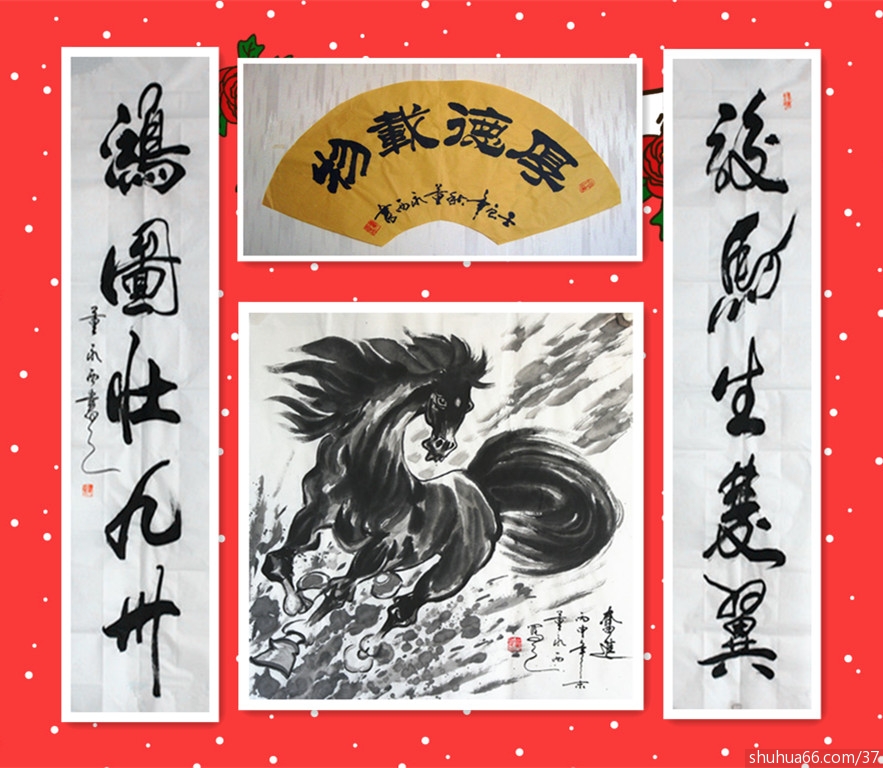 駿馬生雙翼
厚德載物
年秋董永西書
鴻圖壯九州
董永西書
奮進
丙申年
董永西
寫
shuhua66.com/37